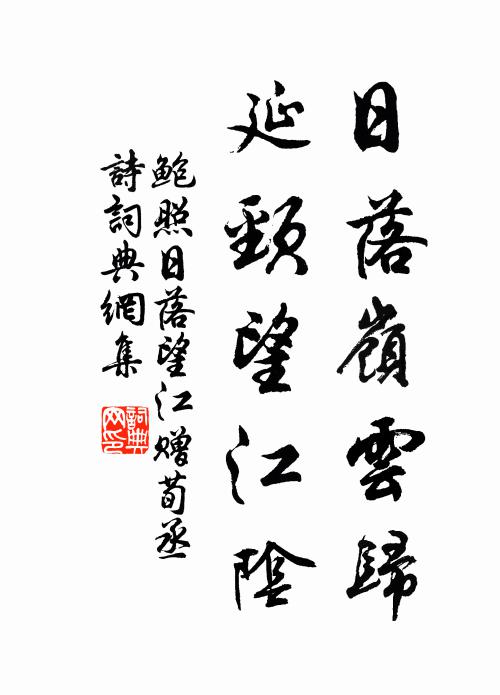 日落嶺雲歸
延頸望江陰
鮑照日落望江贈荀丞
詩詞典網集
詞典网印